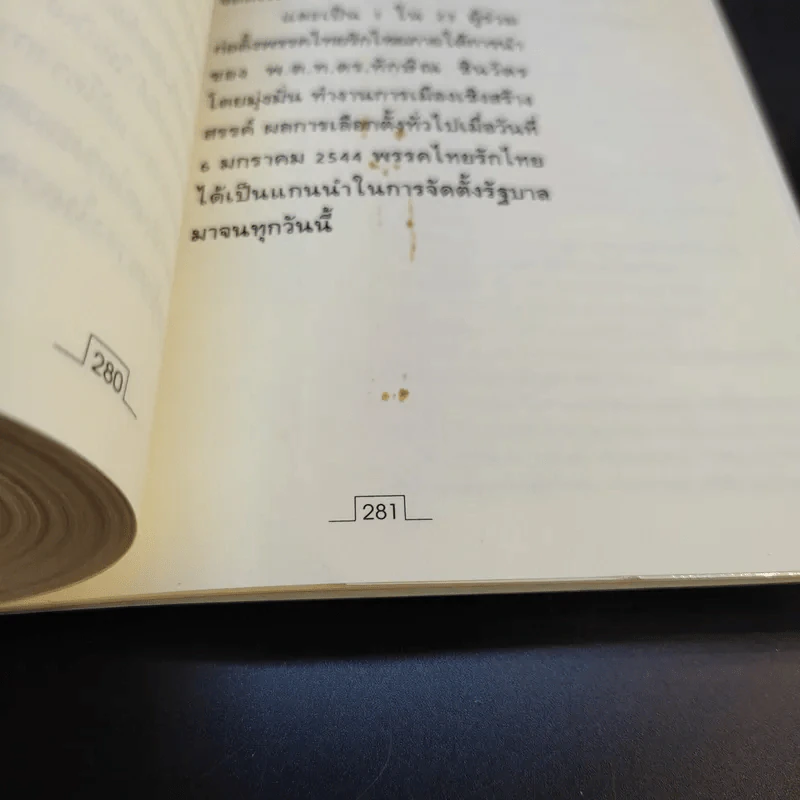 และเป็น 1 ใน 23 ผู้ร่วม
ก่อตั้งพรรคไทยรักไทยภายใต้การนำ
ของ พ.ต.ท.ดร.ทักษิณ ชินวัตร
โดยมุ่งมั่น ทำงานการเมืองเชิงสร้าง
สรรค์ ผลการเลือกตั้งทั่วไปเมื่อวันที่
6 มกราคม 2544 พรรคไทยรักไทย
ได้เป็นแกนนำในการจัดตั้งรัฐบาล
มาจนทุกวันนี้
280
281